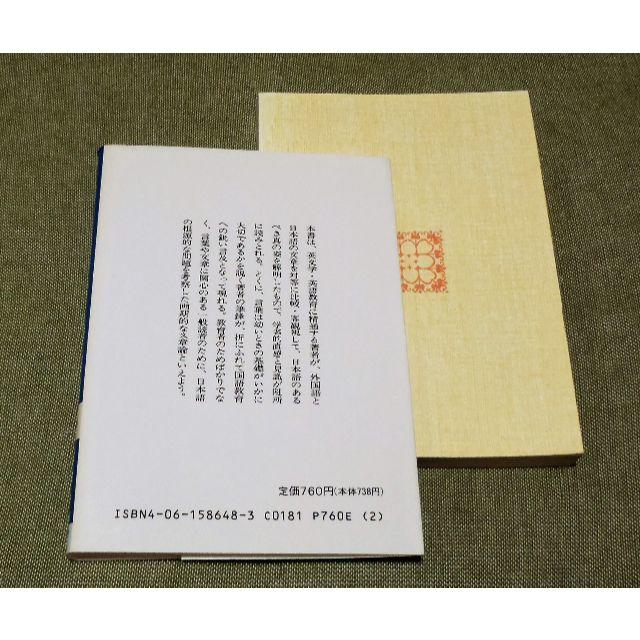 本書は、英文学・英語教育に精通する著者が、外国語と
日本語の文章を対等に比較・客観視して、日本語のある
べき真の姿を解明したもので、学者的直感と見識が随所
に読みとれる。とくに、言葉は幼いときの基礎がいかに
大切であるかを説く著者の筆鋒が、折にふれて国語教育
への鋭い言及となって現れる。教育者のためばかりでな
く、言葉や文章に関心のある一般読者のために、日本語
の根源的な問題を考察した画期的な文章論といえよう。
定価760円(本体738円)
ISBN4-06-158648-3 C0181 P760E (2)